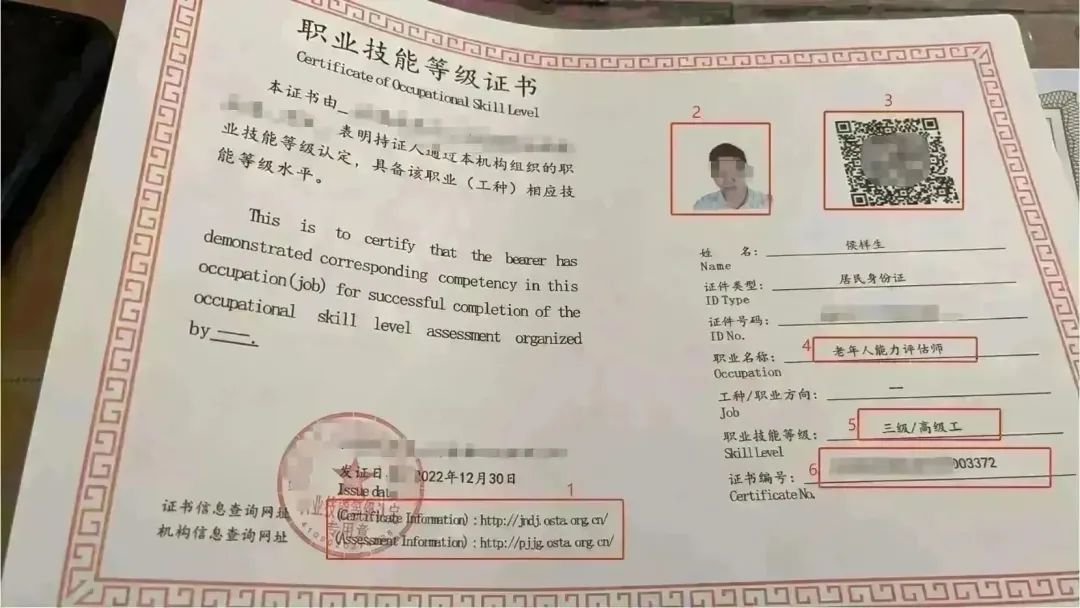 职业技能等级证书
Certificate of Occupational Skill Level
本证书由
表明持证人通过本机构组织的职
业技能等级认定，具备该职业（工种）相应技
能等级水平。
This is to certify that the bearer has
demonstrated corresponding competency in this
occupation(job) for successful completion of the
occupational skill level assessment organized
by
发证日
2022年12月30日
Issue dat
1
证书信息查询网址
(Certificate Information) : http://jndj.osta.org.cn/
机构信息查询网址
(Assessment Information) : http://pjjg.osta.org.cn/
专用章
2
3
姓 名： 侯样生
Name
证件类型： 居民身份证
ID Type
证件号码：
ID No.
职业名称： 4 老年人能力评估师
Occupation
工种/职业方向： —
Job
职业技能等级： 5 三级/高级工
Skill Level
证书编号： 6 003372
Certificate No.